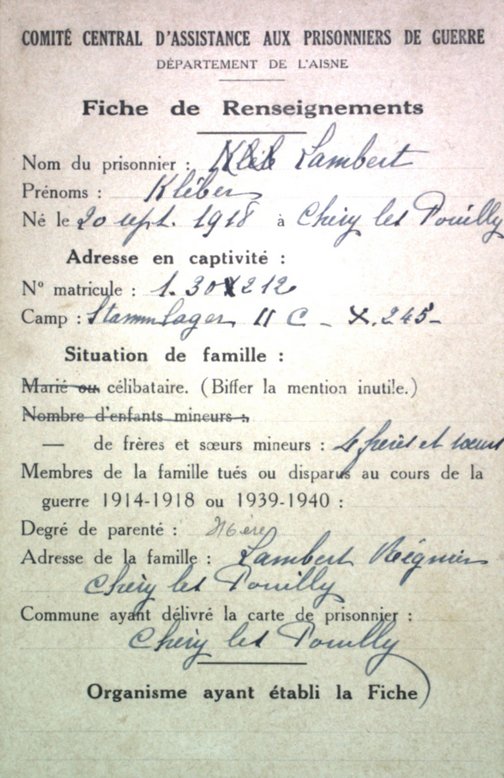 COMITÉ CENTRAL D'ASSISTANCE AUX PRISONNIERS DE GUERRE
DÉPARTEMENT DE L'AISNE
Fiche de Renseignements
Nom du prisonnier : Lambert
Prénoms : Kléber
Né le 20 sept. 1918 à Chéry les Pouilly
Adresse en captivité :
N° matricule : 1.30212
Camp : Stammlager II C - X.245-
Situation de famille :
Marié ou célibataire. (Biffer la mention inutile.)
Nombre d'enfants mineurs :
— de frères et sœurs mineurs : 4 frères et sœurs
Membres de la famille tués ou disparus au cours de la
guerre 1914-1918 ou 1939-1940 :
Degré de parenté : Mère
Adresse de la famille : Lambert Régnier
Chéry les Pouilly
Commune ayant délivré la carte de prisonnier :
Chéry les Pouilly
Organisme ayant établi la Fiche